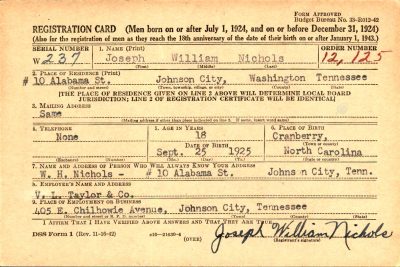 FORM APPROVED
Budget Bureau No. 33-R012-42
REGISTRATION CARD (Men born on or after July 1, 1924, and on or before December 31, 1924)
(Also for the registration of men as they reach the 18th anniversary of the date of their birth on or after January 1, 1943.)
SERIAL NUMBER 1. NAME (Print) ORDER NUMBER
W 237 Joseph William Nichols 12,125
(First) (Middle) (Last)
2. PLACE OF RESIDENCE (Print)
# 10 Alabama St. Johnson City, Washington Tennessee
(Number and street) (Town, township, village, or city) (County) (State)
[THE PLACE OF RESIDENCE GIVEN ON LINE 2 ABOVE WILL DETERMINE LOCAL BOARD
JURISDICTION; LINE 2 OF REGISTRATION CERTIFICATE WILL BE IDENTICAL]
3. MAILING ADDRESS
Same
(Mailing address if other than place indicated on line 2. If same, insert word same)
4. TELEPHONE 5. AGE IN YEARS 6. PLACE OF BIRTH
None 18 Cranberry,
DATE OF BIRTH (Town or county)
Sept. 25 1925 North Carolina
7. NAME AND ADDRESS OF PERSON WHO WILL ALWAYS KNOW YOUR ADDRESS
W. H. Nichols - # 10 Alabama St. Johnson City, Tenn.
8. EMPLOYER'S NAME AND ADDRESS
V. L. Taylor & Co.
9. PLACE OF EMPLOYMENT OR BUSINESS
405 E. Chilhowie Avenue, Johnson City, Tennessee
I AFFIRM THAT I HAVE VERIFIED ABOVE ANSWERS AND THAT THEY ARE TRUE.
DSS Form 1 (Rev. 11-16-42) (OVER) Joseph William Nichols
(Registrant's signature)